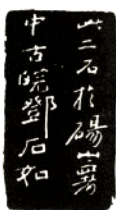 此二石於碭山署
中古皖鄧石如